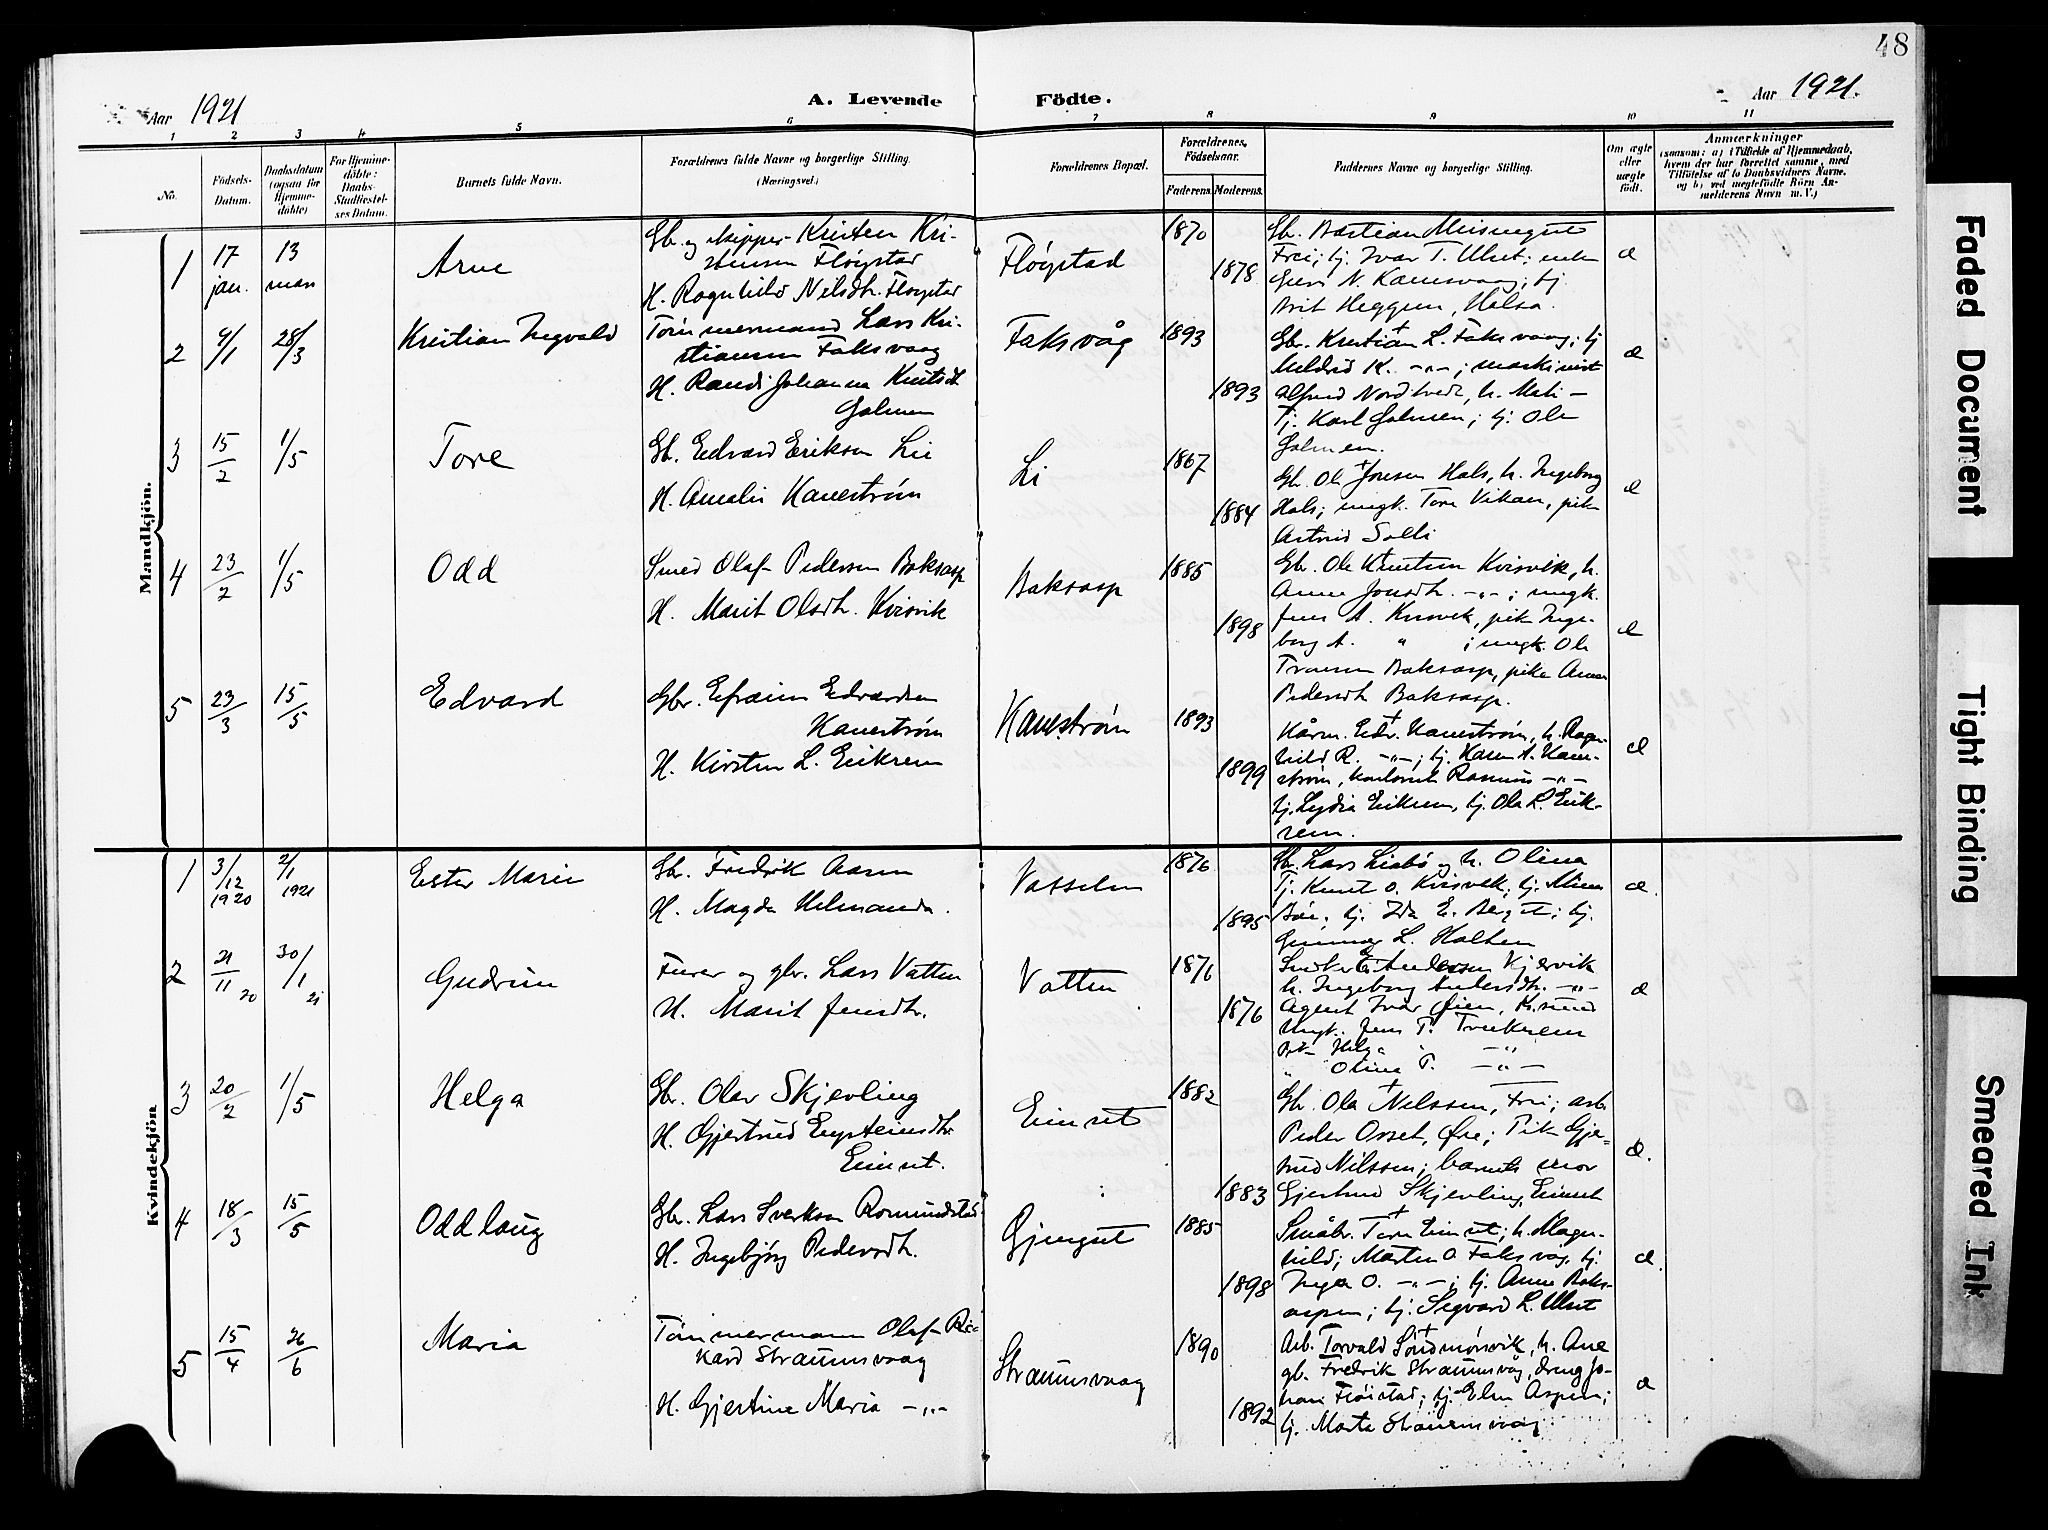 48
Aar 1921
A. Levende Födte.
Aar 1921.
1 2 3 4 5 6 7 8 9 10 11
No.
Födsels-Datum.
Daabsdatum (ogsaa for Hjemmedöbte)
For Hjemmedöbte: Daabs-Stadfæstelses Datum.
Barnets fulde Navn.
Forældrenes fulde Navne og borgerlige Stilling.
(Næringsvei.)
Forældrenes Bopæl.
Forældrenes Födselsaar.
Faderens. Moderens.
Faddernes Navne og borgerlige Stilling.
Om ægte eller uægte födt.
Anmærkninger
(saasom: a) i Tilfælde af Hjemmedaab, hvem der har forrettet samme, med Tilföielse af to Daabsvidners Navne, og b) ved uægtefödte Börn Anmelderens Navn m. V.)
Mandkjön.
1 17 jan. 13 mars Arne
Gb. og skipper Kristen Kristensen Fløystad
H. Ragnhild Nelsdtr. Fløystad
Fløystad 1870 1878
Frei; tj. Ivar T. Ulset;
Brit Heggem, Halsa.
æ
2 9/1 28/3 Kristian Ingvald
Tømmermand Lars Kristiansen Faksvaag
H. Randi Johanna Knutsdt. Golmen
Faksvåg 1893 1893
Gbr. Kristian L. Faksvaag; tj
Mildrid K. -"-; maskinist
Alfred Nordtvedt, h.
Tj. Karl Golmen; tj. Ole
Golmen.
æ
3 15/2 1/5 Tore
Gb. Edvard Eriksen Lii
H. Amalie Kanestrøm
Li 1867 1884
Gb. Ole Jonsen Hals, h. Ingeborg
Hals; ungk. Tore Vikan, pike
Astrid Solli
æ
4 23/2 1/5 Odd
Smed Olaf Pedersen Baksasp
H. Marit Olsdtr. Kvisvik
Baksasp 1885 1898
Gbr. Ole Knutsen Kvisvik, h.
Anne Jonsdtr. -"-; ungk.
Jens A. Kvisvik, pike Ingeborg A. " ; ungk. Ole
Baksasp, pike Anna
Pedersdtr Baksasp.
æ
5 23/3 15/5 Edvard
Gbr. Efraim Edvardsen
Kanestrøm
H. Kirsten L. Eikrem
Kanestrøm 1893 1899
Kårm. Edv. Kanestrøm, h. Ragnhild R. -"-; tj. Karen A. Kanestrøm, Rasmus -"-
tj. Lydia Eikrem, tj. Ole L. Eikrem.
æ
Kvindekjön
1 3/12 1920 2/1 1921 Ester Marie
Gb. Fredrik Aasen
H. Magda Helmanda.
Vasselen 1876 1895
Gb. Lars Liabø og h. Olina
Tj. Knut O. Kvisvik; tj.
Bøe; tj. Ida E. Bergset; tj.
L. Halten
æ.
2 21/11 20 30/1 21 Gudrun
Furer og gbr. Lars Vatten
H. Marit Jensdtr.
Vatten 1876 1876
Andersen Kjervik
h. Ingeborg Andersdtr. -"-
Agent Ivar Øien, Kr.sund
Ungk. Jens T.
Pik. Helga " -"-
" Olina T. -"-
æ
3 20/2 1/5 Helga
Gbr. Olav Skjevling
H. Gjertrud Eysteinsdtr.
Eimset.
Eimset 1882 1883
Gbr. Ole Nilssen, Frei; arb.
Peder Orset, Øre; Pik. Gjertrud Nilssen; barnets mor
Gjertrud Skjevling, Eimset
æ.
4 18/3 15/5 Oddlaug
Gbr. Lars Sverksen Romundstad
H. Ingebjørg Pedersdtr.
Gjengset 1885 1898
Småbr. Tore Eimset; h. Magnhild; Marten O. Faksvaag, tj.
Inga O. -"-; tj. Anne Baksaspen; tj. Segvard L. Ulset
æ.
5 15/4 26/6 Maria
Tømmermann Olaf Rikard Straumsvaag
H. Gjertine Maria -"-
Straumsvaag 1890 1892
Arb. Torvald Søndmørsvik, h. Ane
gb. Fredrik Straumsvåg, dreng Johan Fløistad; tj. Elen Aspen;
tj. Marta Straumsvaag
æ
Faded Document
Tight Binding
Smeared Ink